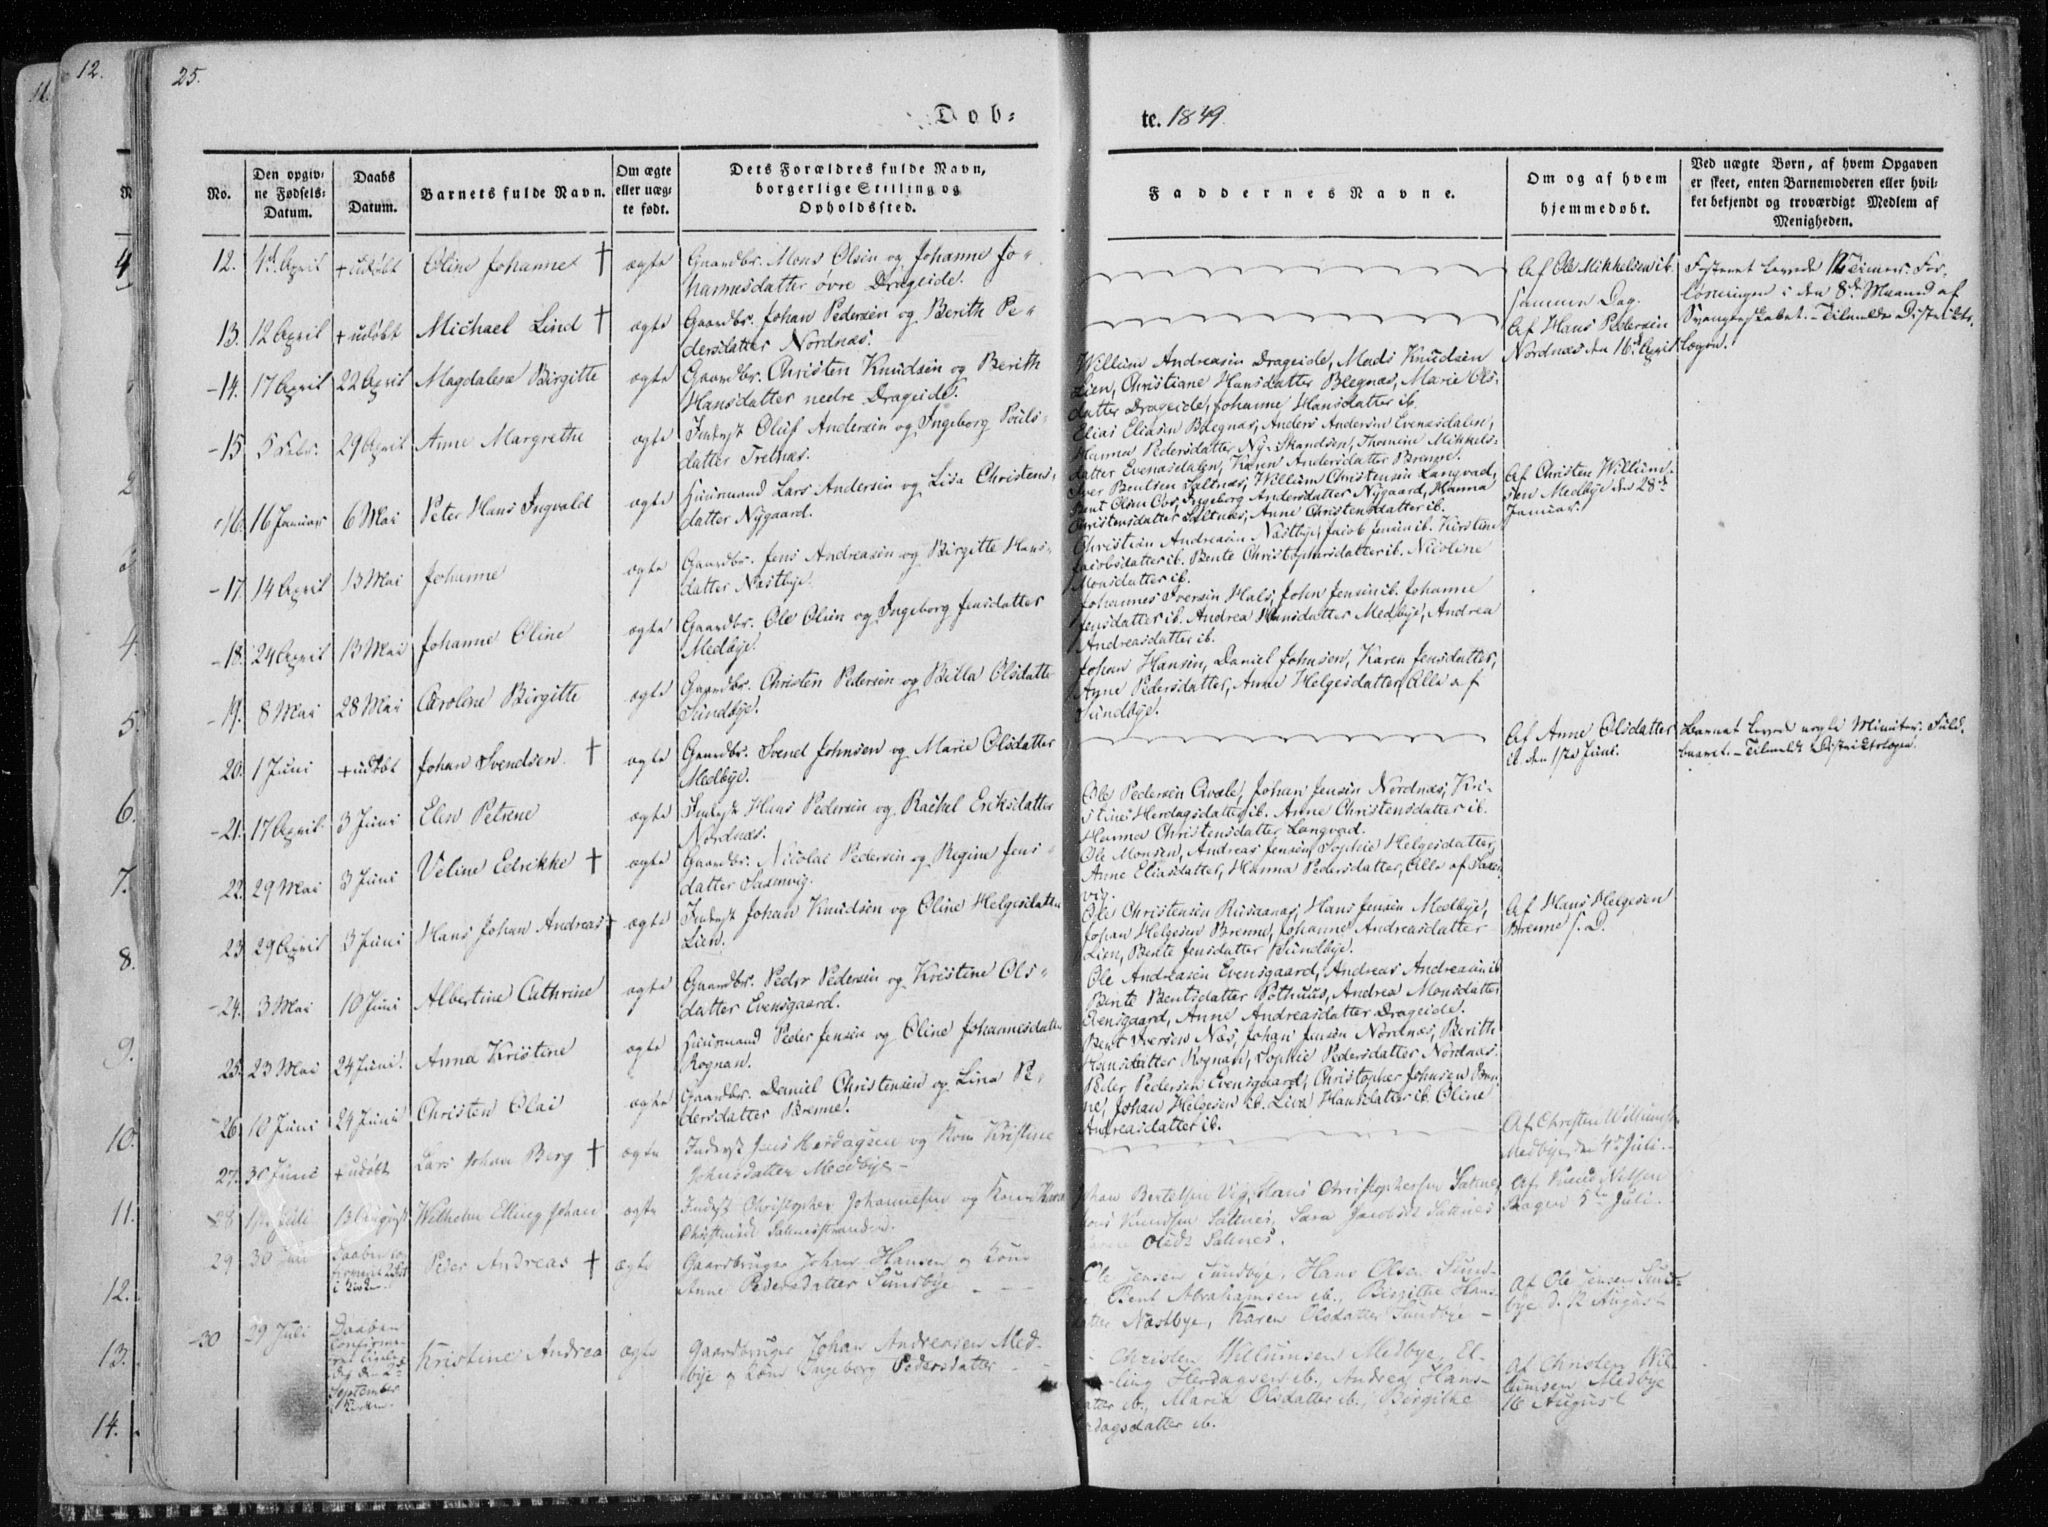 11.
12.
25.
Dob=
te. 1849.
No.
Den opgiv=
ne Fødsels=
Datum.
Daabs
Datum.
Barnets fulde Navn.
Om ægte
eller uæg=
te født.
Dets Forældres fulde Navn,
borgerlige Stilling og
Opholdssted.
Faddernes Navne.
Om og af hvem
hjemmedøbt.
Ved uægte Børn, af hvem Opgaven
er skeet, enten Barnemoderen eller hvil=
ket bekjendt og troværdigt Medlem af
Menigheden.
12. 4d April + udøbt Oline Johanne † ægte Gaardbr. Mons Olsen og Johanne Jo=
hannesdatter øvre Drageide.
Af Ole Mikkelsen ib.
samme Dag.
Fosteret levede 12 Timer. For=
løsningen i den 8de Maaned af
Svangerskabet. - Tilmeldt Distrikts=
lægen.
13. 12 April + udøbt Michael Lind † ægte Gaardbr. Johan Pedersen og Berith Pe=
dersdatter Nordnæs.
Af Hans Pedersen
Nordnæs den 16d April
14. 17 April 22 April Magdalena Birgitte ægte Gaardbr. Christen Knudsen og Berith
Hansdatter nedre Drageide.
Willum Andreasen Drageide, Mads Knudsen
Lien, Christiane Hansdatter Blegnæs, Marie Ols=
datter Drageide, Johanne Hansdatter ib.
15. 5 Febr. 29 April Anne Margrethe ægte Inderst Oluf Andersen og Ingeborg Pouls=
datter Tretnæs.
Elias Eliasen Blegnæs, Anders Andersen Evenæsdalen,
Hanna Pedersdatter Ny-Skandsen, Thomine Mikkels=
datter Evenæsdalen, Karen Andersdatter Brenne.
16. 16 Januar 6 Mai Peter Hans Ingvald ægte Huusmand Lars Andersen og Lisa Christens=
datter Nygaard.
Iver Bentsen Saltnæs, Willum Christensen Langvad,
Bent Olsen Oos, Ingeborg Andersdatter Nygaard, Hanna
Christensdatter Saltnæs, Anne Christensdatter ib.
Af Christen Willum=
sen Medbye den 28de
Januar.
17. 14 April 13 Mai Johanne ægte Gaardbr. Jens Andreasen og Birgitte Hans=
datter Næstbye.
Christian Andreasen Næstbye, Jacob Jensen ib. Kirstine
Jacobsdatter ib. Bente Christophersdatter ib. Nicoline
Monsdatter ib.
18. 24 April 13 Mai Johanne Oline ægte Gaardbr. Ole Olsen og Ingeborg Jensdatter
Medbye.
Johannes Iversen Hals, John Jensen ib. Johanne
Jensdatter ib. Andrea Hansdatter Medbye, Andrea
Andreasdatter ib.
19. 8 Mai 28 Mai Caroline Birgitte ægte Gaardbr. Christen Pedersen og Billa Olsdatter
Sundbye.
Johan Hansen, Daniel Johnsen, Karen Jensdatter,
Anne Pedersdatter, Anne Helgesdatter, Alle af
Sundbye.
20. 1 Juni + udøbt Johan Svendsen. † ægte Gaardbr. Svend Johnsen og Marie Olsdatter
Medbye.
Af Anne Olsdatter
ib. den 1ste Juni.
Barnet levede nogle Minuter. Fuld
baaret. - Tilmeldt Distriktslægen.
21. 17 April. 3 Juni Elen Petrine ægte Inderst Hans Pedersen og Rachel Eriksdatter
Nordnæs.
Ole Pedersen Qvæle, Johan Jensen Nordnæs, Kri=
stine Herdagsdatter ib. Anne Christensdatter ib.
Hanna Christensdatter Langvad.
22. 29 Mai 3 Juni Veline Edrikke † ægte Gaardbr. Nicolai Pedersen og Regine Jens=
datter Saxenvig.
Ole Monsen, Andreas Jensen, Sophie Helgesdatter,
Anne Eliasdatter, Hanna Pedersdatter, Alle af Saxen
vig.
23. 29 April 3 Juni Hans Johan Andreas † ægte Inderst Johan Knudsen og Oline Helgesdatter
Lien.
Ole Christensen Rusaanæs, Hans Jensen Medbye,
Johan Helgesen Brenne, Johanne Andreasdatter
Lien, Bente Jensdatter Sundbye.
Af Hans Helgesen
Brenne s. D.
24. 3 Mai 10 Juni Albertine Cathrine ægte Gaardbr. Peder Pedersen og Kristine Ols=
datter Evensgaard.
Ole Andreasen Evensgaard, Andreas Andreasen ib.
Bente Bentsdatter Pothuus, Andrea Monsdatter
Evensgaard, Anne Andreasdatter Drageide.
25. 23 Mai 24 Juni. Anna Kristine ægte Huusmand Peder Jensen og Oline Johannesdatter
Rognan.
Bent Iversen Næs, Johan Jensen Nordnæs, Berith
Hansdatter Rognan, Sophie Pedersdatter Nordnæs.
26. 10 Juni 24 Juni Christen Olai ægte Gaardbr. Daniel Christensen og Lina Pe=
dersdatter Brenne.
Peder Pedersen Evensgaard, Christopher Johnsen Bren=
ne, Johan Helgesen ib. Liva Hansdatter ib. Oline
Andreasdatter ib.
27. 30 Juni + udøbt Lars Johan Berg † ægte Inderst Jens Herdagsen og Kone Kristine
Johnsdatter Medbye -
Af Christen Willumsen
Medbye, den 4de Juli.
28 Juli 13 August Wilhelm Elling Johan ægte Inderst Christopher Johannesen og Kone Karen
Christensdt Saltnesstranden.
Johan Bertelsen Vig, Hans Christophersen Saltnes,
Knudsen Saltnes, Sara Jacobsdt Saltnes
Olsdt Saltnes.
Af Knud Nilsen
5te Juli.
29 30 Juli Daaben con
firmeret
i Kirken. Peder Andreas † ægte Gaardbruger Johan Hansen og Kone
Anne Pedersdatter Sundbye
Ole Jensen Sundbye, Hans Olsen Sund-
Bent Abrahamsen ib., Birgithe Hans
datter Næstbye, Karen Olsdatter Sundbye -
Af Ole Jensen Sund-
bye d. 12 August
30 29 Juli Daaben
Confirme-
ret
den 2den
September
i Kirken. Kristine Andrea ægte Gaardbruger Johan Andreasen Med-
bye og Kone Ingeborg Pedersdatter
Christen Willumsen Medbye, El-
ling Herdagsen ib., Andrea Hans-
datter ib., Maria Olsdatter ib., Birgithe
Herdagsdatter ib.
Af Christen Wil-
lumsen Medbye
16 August
4
2
3
4.
5.
6.
7.
8.
9.
10.
11.
12.
13.
14.